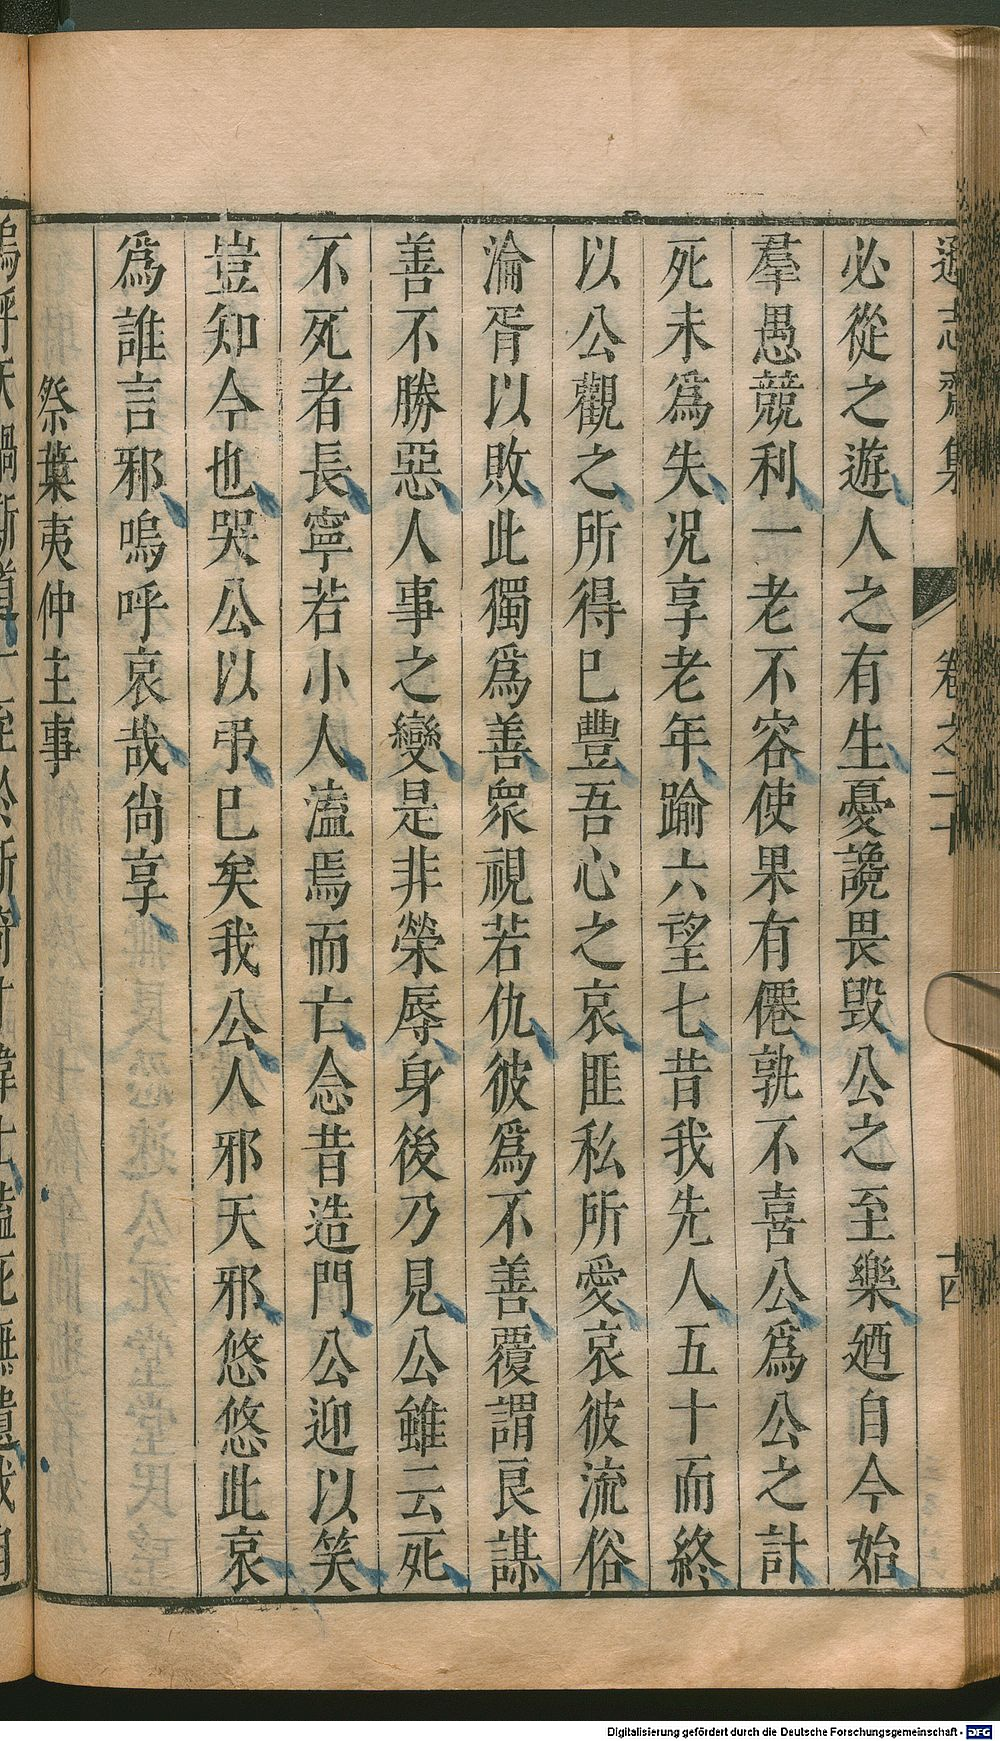 遜志齋集 卷之二十 十四
必從之遊人之有生憂讒畏毀公之至樂廼自今始
羣愚競利一老不容使果有僊孰不喜公爲公之計
死未爲失况享老年踰六望七昔我先人五十而終
以公觀之所得已豐吾心之哀匪私所愛哀彼流俗
淪胥以敗此獨爲善衆視若仇彼爲不善覆謂良謀
善不勝惡人事之變是非榮辱身後乃見公雖云死
不死者長寧若小人溘焉而亡念昔造門公迎以笑
豈知今也哭公以弔已矣我公人邪天邪悠悠此哀
爲誰言邪嗚呼哀哉尚享
祭葉夷仲主事
Digitalisierung gefördert durch die Deutsche Forschungsgemeinschaft - DFG